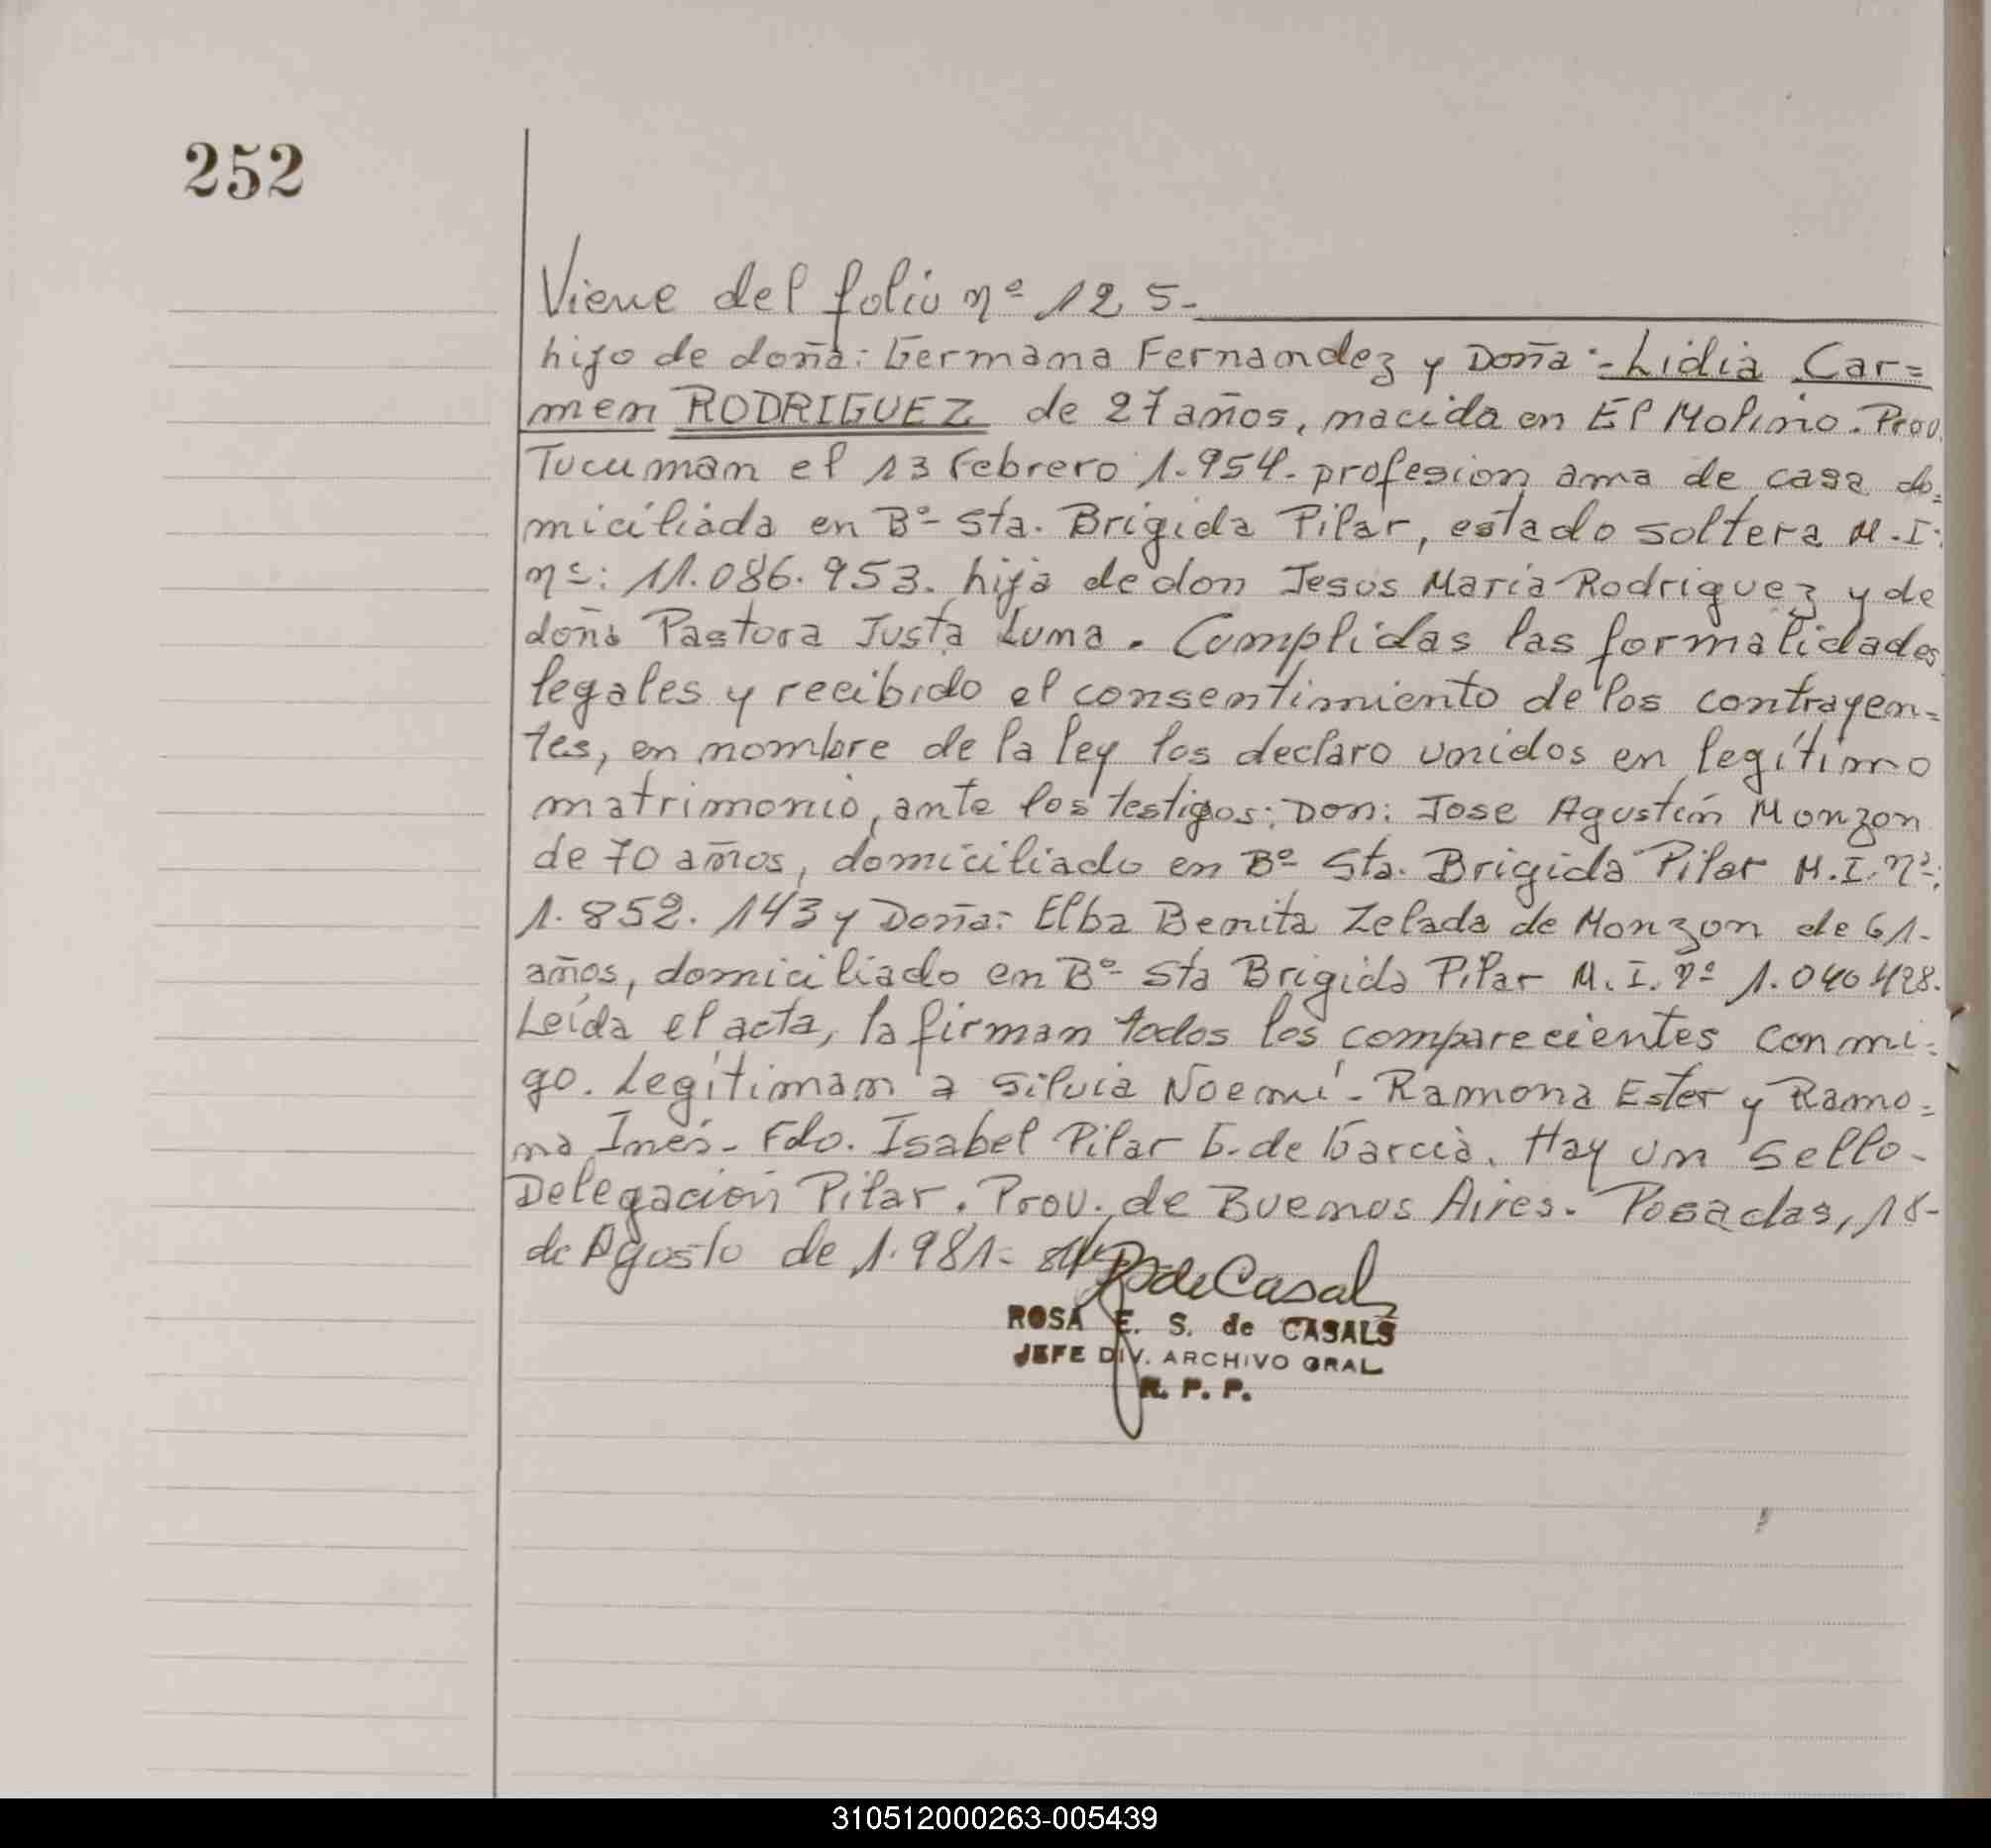 252
Viene del folio nº 125-
hijo de doña: Germana Fernandez y Doña:- Lidia Car=
men RODRIGUEZ de 27 años, nacida en El Molino. Prov.
Tucuman el 13 Febrero 1.954- profesion ama de casa do=
miciliada en Bº- Sta. Brigida Pilar, estado soltera M.I:
nº: 11.086.953. hija de don Jesus Maria Rodriguez y de
doña Pastora Justa Luma. Cumplidas las formalidades
legales y recibido el consentimiento de los contrayen=
tes, en nombre de la ley los declaro unidos en legítimo
matrimonio, ante los testigos: Don: Jose Agustín Monzon
de 70 años, domiciliado en Bº Sta. Brigida Pilar M.I. nº:
1.852.143 y Doña: Elba Benita Zelada de Monzon de 61-
años, domiciliado en Bº- Sta Brigida Pilar M.I. nº 1.040428.
Leída el acta, la firman todos los comparecientes conmi=
go. Legítiman a Silvia Noemí- Ramona Ester y Ramo=
na Inés- Fdo. Isabel Pilar G. de García. Hay un sello-
Delegación Pilar. Prov. de Buenos Aires- Posadas, 18-
de Agosto de 1.981-
de Casals
ROSA E. S. de CASALS
JEFE DIV. ARCHIVO GRAL
R. P. P.
310512000263-005439